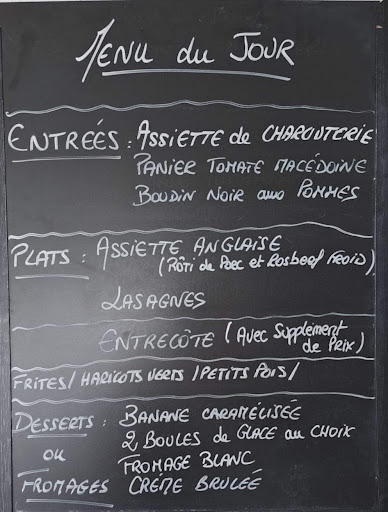 Menu du Jour
Entreés : Assiette de Charcuterie
Panier Tomate Macédoine
Boudin Noir aux Pommes
Plats : Assiette Anglaise
(Rôti de Porc et Rosbeef Froid)
Lasagnes
Entrecôte (Avec Supplément
de Prix)
Frites/ Haricots verts /Petits Pois/
Desserts : Banane Caramélisée
ou 2 Boules de Glace au Choix
Fromage Blanc
Fromages Créme Bruleé